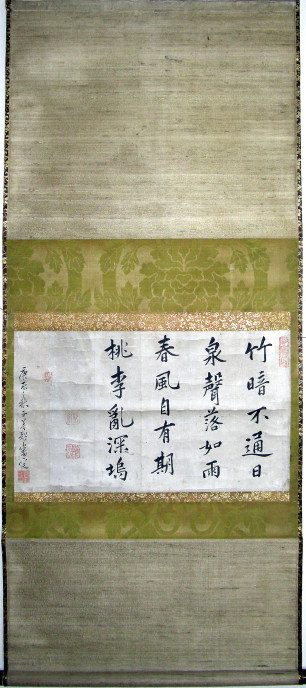 竹暗不通日
泉聲落如雨
春風自有期
桃李亂深塢